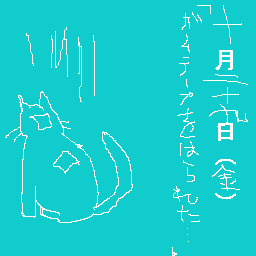 十月二十九日（金）
「ガムテープをはられた…」